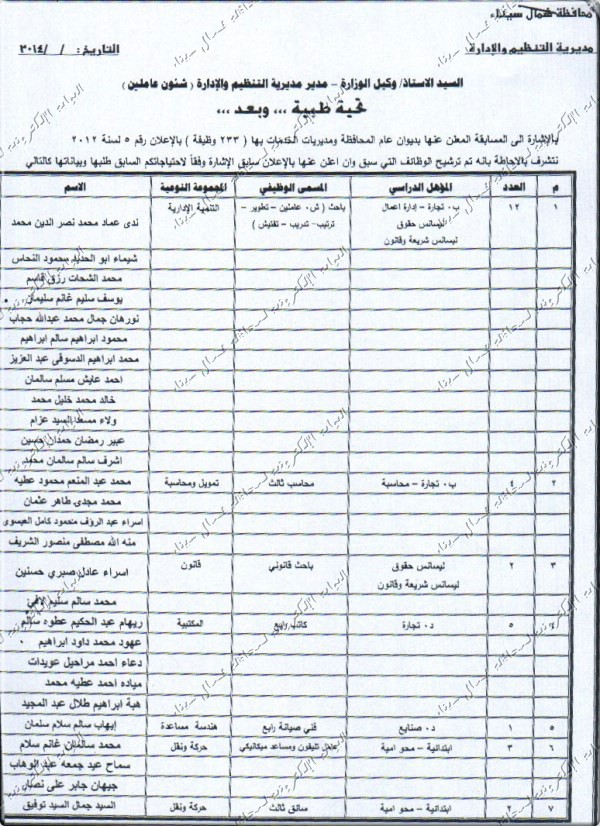 محافظة شمال سيناء
مديرية التنظيم والإدارة
التاريخ: / /٢٠١٤
السيد الاستاذ/ وكيل الوزارة - مدير مديرية التنظيم والإدارة ( شئون عاملين )
تحية طيبة ... وبعد ...
بالإشارة الى المسابقة المعلن عنها بديوان عام المحافظة ومديريات الخدمات بها ( ٢٣٣ وظيفة ) بالإعلان رقم ٥ لسنة ٢٠١٢
نتشرف بالاحاطة بانه تم ترشيح الوظائف التي سبق وان اعلن عنها بالإعلان سابق الإشارة وفقاً لاحتياجاتكم السابق طلبها وبياناتها كالتالي
م العدد المؤهل الدراسي المسمى الوظيفي المجموعة النوعية الاسم
١ ١٢ ب٠ تجارة - إدارة اعمال باحث ( ش٠ عاملين - تطوير - التنمية الإدارية ندى عماد محمد نصر الدين محمد
ليسانس حقوق ترتيب - تدريب - تفتيش )
ليسانس شريعة وقانون
شيماء ابو الحديد محمود النحاس
محمد الشحات رزق قاسم
يوسف سليم غانم سليمان
نورهان جمال محمد عبدالله حجاب
محمود ابراهيم سالم ابراهيم
محمد ابراهيم الدسوقى عبد العزيز
احمد عايش مسلم سالمان
خالد محمد خليل محمد
ولاء مسعد السيد عزام
عبير رمضان حمدان حسين
اشرف سالم سالمان محمد
٢ ٤ ب٠ تجارة - محاسبة محاسب ثالث تمويل ومحاسبة محمد عبد المنعم محمود عطيه
محمد مجدى طاهر عثمان
اسراء عبد الرؤف محمود كامل العيسوى
منه الله مصطفى منصور الشريف
٣ ٢ ليسانس حقوق باحث قانوني قانون اسراء عادل صبري حسنين
ليسانس شريعة وقانون
محمد سالم سليم
٤ ٥ د٠ تجارة كاتب رابع المكتبية ريهام عبد الحكيم عطوه سالم
عهود محمد داود ابراهيم
دعاء احمد مراحيل عويدات
مياده احمد عطيه محمد
هبة ابراهيم طلال عبد المجيد
٥ ١ د٠ صنايع فني صيانة رابع هندسة مساعدة إيهاب سالم سلام سلمان
٦ ٣ ابتدائية - محو امية عامل تليفون ومساعد ميكانيكي حركة ونقل محمد سالمان غانم سلام
سماح عيد جمعه عبد الوهاب
جيهان جابر على نصار
٧ ٢ ابتدائية - محو امية سائق ثالث حركة ونقل السيد جمال السيد توفيق